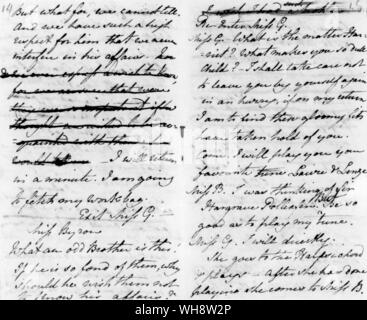 But what for, we cannot tell,
and we have such a high
respect for him that we never
interfere in his affairs.
I will return
in a minute. I am going
to fetch my work bag.
Exit Miss G.
Miss Byron
What an odd Brother is this!
If he is so fond of them, why
should he wish them not
to know his affairs?
Enter Miss G.
Miss G. What is the matter Har-
riet? What makes you so dull
Child? I shall take care not
to leave you by yourself again
in an hurry, if on my return
I am to find these gloomy fits
have taken hold of you.
Come, I will play you your
favorite tune Laure & Lenze
Miss B. I was thinking of Sir
Hargrave Pollexfen. But be so
good as to play my Tune.
Miss G. I will directly.
She goes to the Harpsichord
& plays after she has done
playing she comes to Miss B.
alamy
MH8W2P